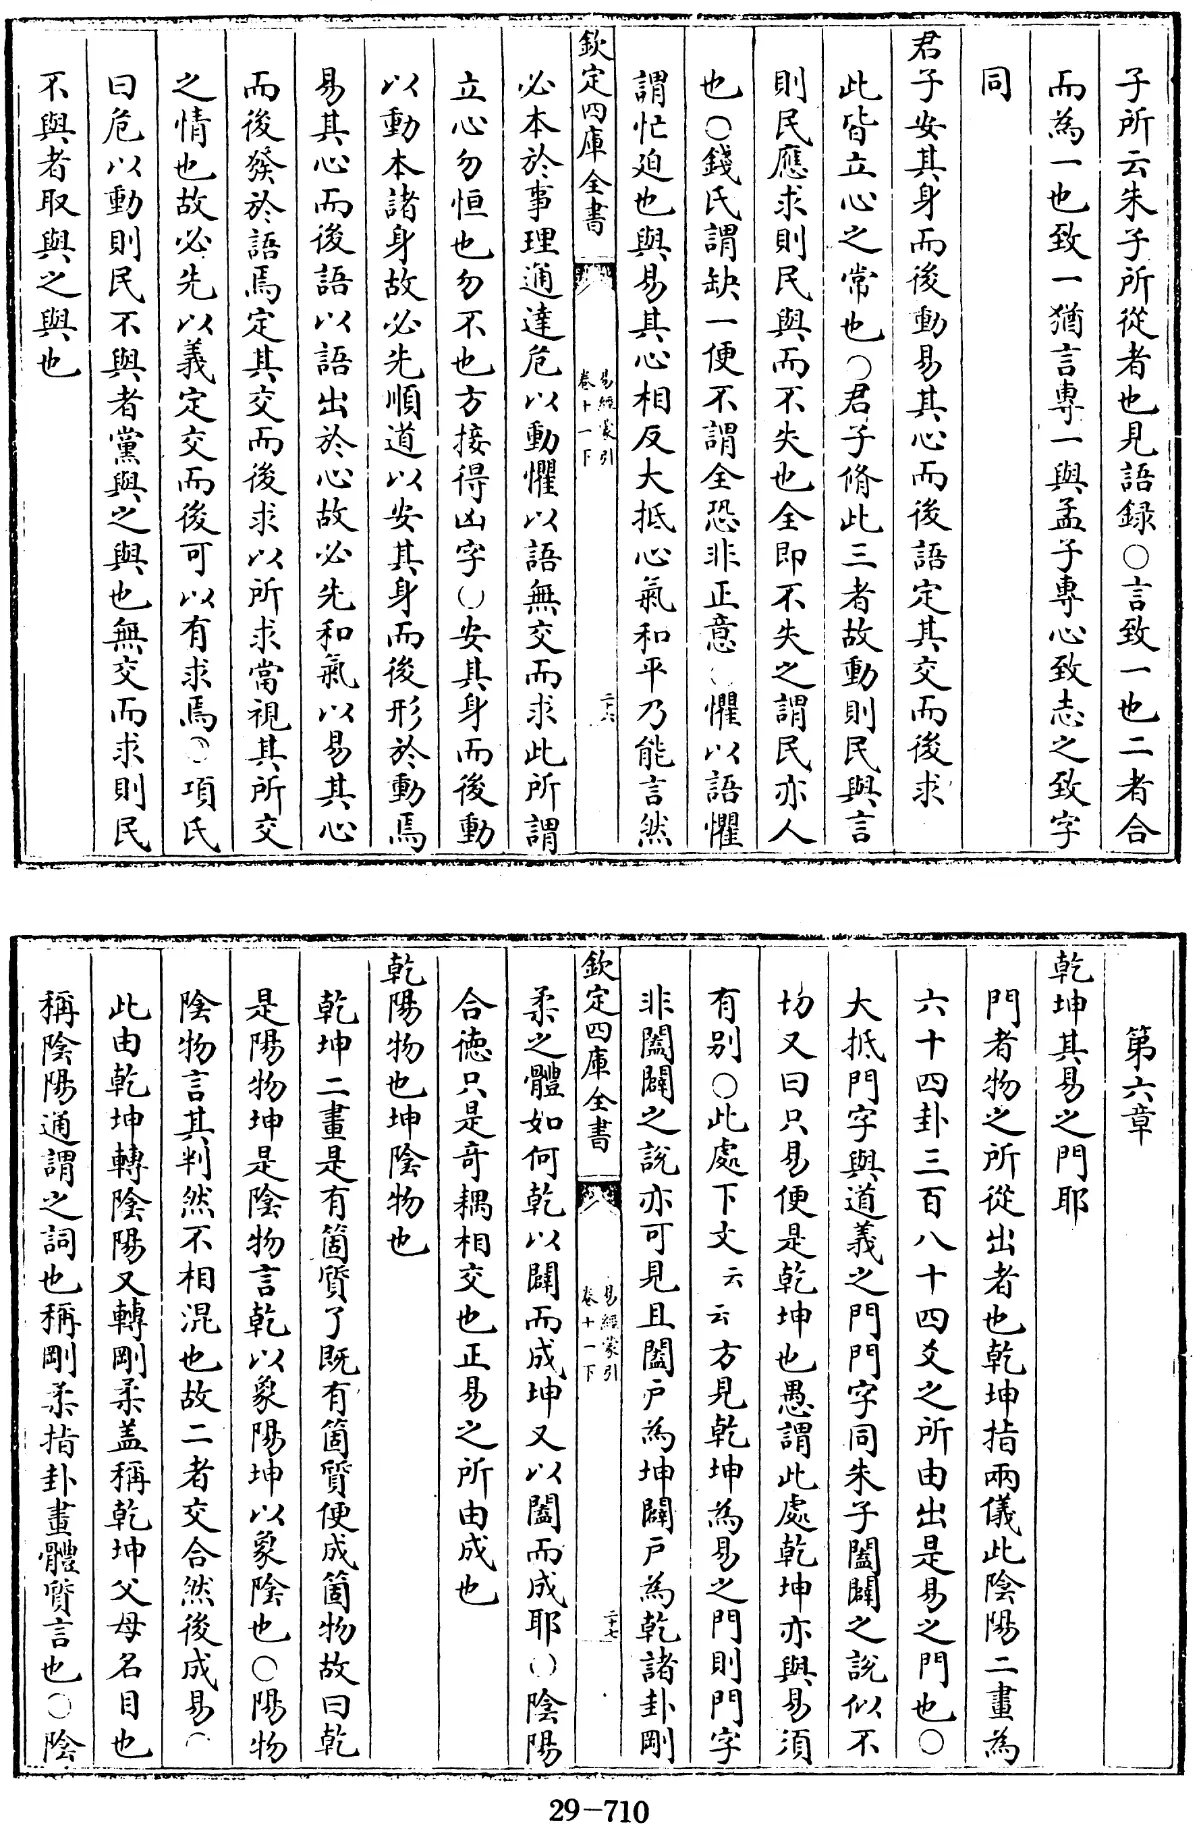 子所云朱子所從者也見語録○言致一也二者合
而為一也致一猶言專一與孟子專心致志之致字
同
君子安其身而後動易其心而後語定其交而後求
此皆立心之常也○君子脩此三者故動則民與言
則民應求則民與而不失也全即不失之謂民亦人
也○錢氏謂缺一便不謂全恐非正意○懼以語懼
謂忙迫也與易其心相反大抵心氣和平乃能言然
欽定四庫全書
易經蒙引
卷十一下
二十六
必本於事理通達危以動懼以語無交而求此所謂
立心勿恒也勿不也方接得凶字○安其身而後動
以動本諸身故必先順道以安其身而後形於動焉
易其心而後語以語出於心故必先和氣以易其心
而後發於語焉定其交而後求以所求當視其所交
之情也故必先以義定交而後可以有求焉○項氏
曰危以動則民不與者黨與之與也無交而求則民
不與者取與之與也
第六章
乾坤其易之門耶
門者物之所從出者也乾坤指兩儀此陰陽二畫為
六十四卦三百八十四爻之所由出是易之門也○
大抵門字與道義之門門字同朱子闔闢之説似不
切又曰只易便是乾坤也愚謂此處乾坤亦與易須
有别○此處下文云云方見乾坤為易之門則門字
非闔闢之説亦可見且闔户為坤闢户為乾諸卦剛
欽定四庫全書
易經蒙引
卷十一下
二十七
柔之體如何乾以闢而成坤又以闔而成耶○陰陽
合德只是奇耦相交也正易之所由成也
乾陽物也坤陰物也
乾坤二畫是有箇質了既有箇質便成箇物故曰乾
是陽物坤是陰物言乾以象陽坤以象陰也○陽物
陰物言其判然不相混也故二者交合然後成易○
此由乾坤轉陰陽又轉剛柔盖稱乾坤父母名目也
稱陰陽通謂之詞也稱剛柔指卦畫體質言也○陰
29-710